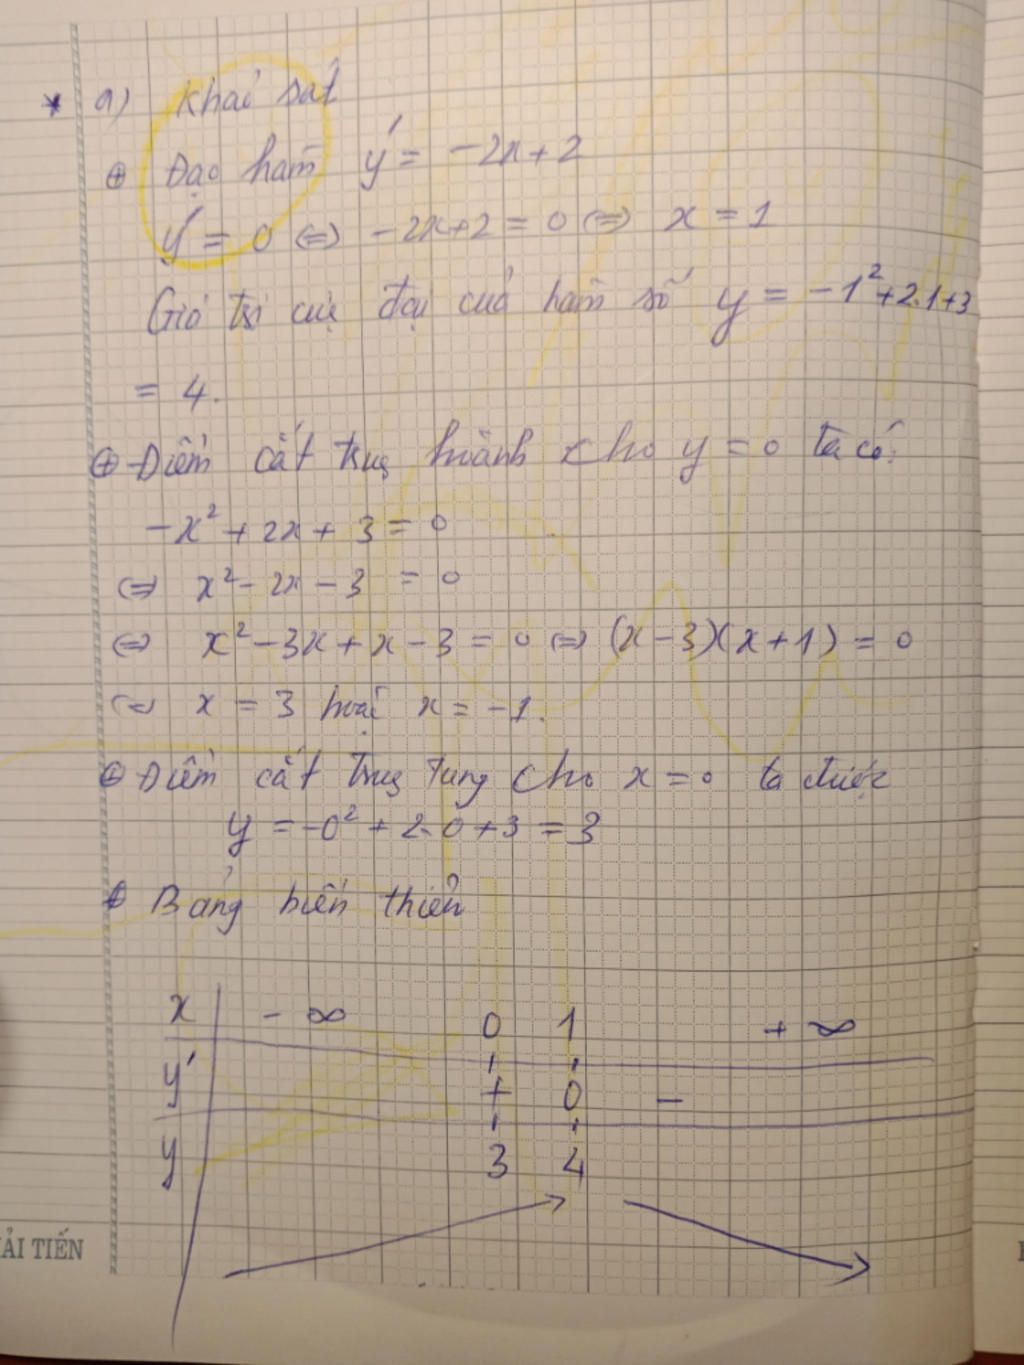 * a) Khảo sát
⊕ Đạo hàm y' = -2x + 2
y' = 0 ⇔ -2x+2 = 0 ⇔ x = 1
Giá trị cực đại của hàm số y = -1²+2.1+3
= 4.
⊕ Điểm cắt trục hoành cho y = 0 ta có:
-x² + 2x + 3 = 0
⇔ x² - 2x - 3 = 0
⇔ x² - 3x + x - 3 = 0 ⇔ (x - 3)(x + 1) = 0
⇔ x = 3 hoặc x = -1.
⊕ Điểm cắt trục tung cho x = 0 ta được
y = -0² + 2.0 + 3 = 3
⊕ Bảng biến thiên
x -∞ 0 1 +∞
y' + 0 -
y 3 4
ẢI TIẾN